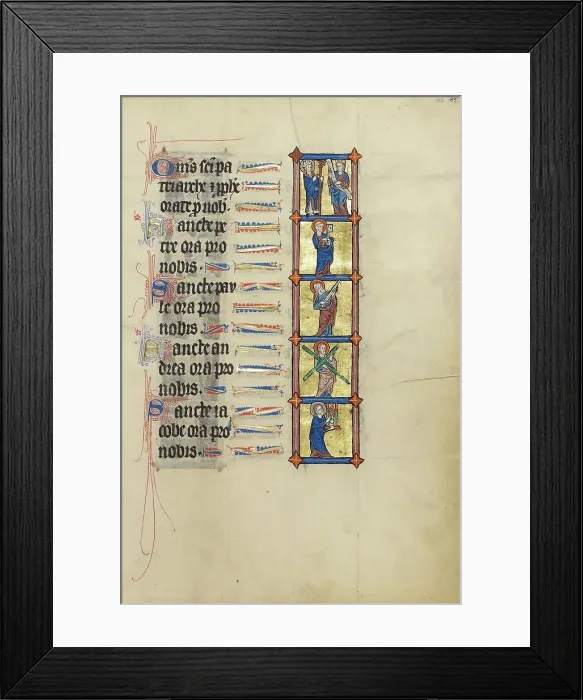 Om̅s sc̅i pa
triarche ⁊ ꝓphe
orate ꝓ nob.
Sancte pe
tre ora pro
nobis.
Sancte pau
le ora pro
nobis.
Sancte an
drea ora pro
nobis.
Sancte ia
cobe ora pro
nobis.